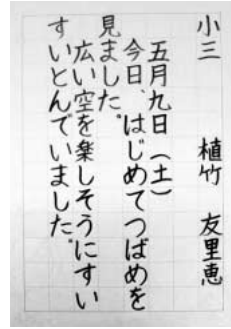 小三　植竹　友里恵
五月九日（土）
今日、はじめてつばめを
見ました。
広い空を楽しそうにすい
すいとんでいました。